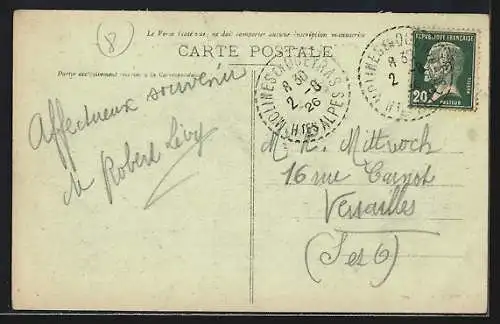 8
Le Verso étant nu, ne doit comporter aucune inscription manuscrite
CARTE POSTALE
Partie exclusivement réservée à la Correspondance
Affectueux souvenir
de Robert Lévy
MOLINES EN QUEYRAS
8 30
2 - 8
26
HTES ALPES
MOLINES EN QUE
8 30
2
HTES
REPUBLIQUE FRANÇAISE
20c
PASTEUR
M. R. Mittwoch
16 rue Carnot
Versailles
(S et O)